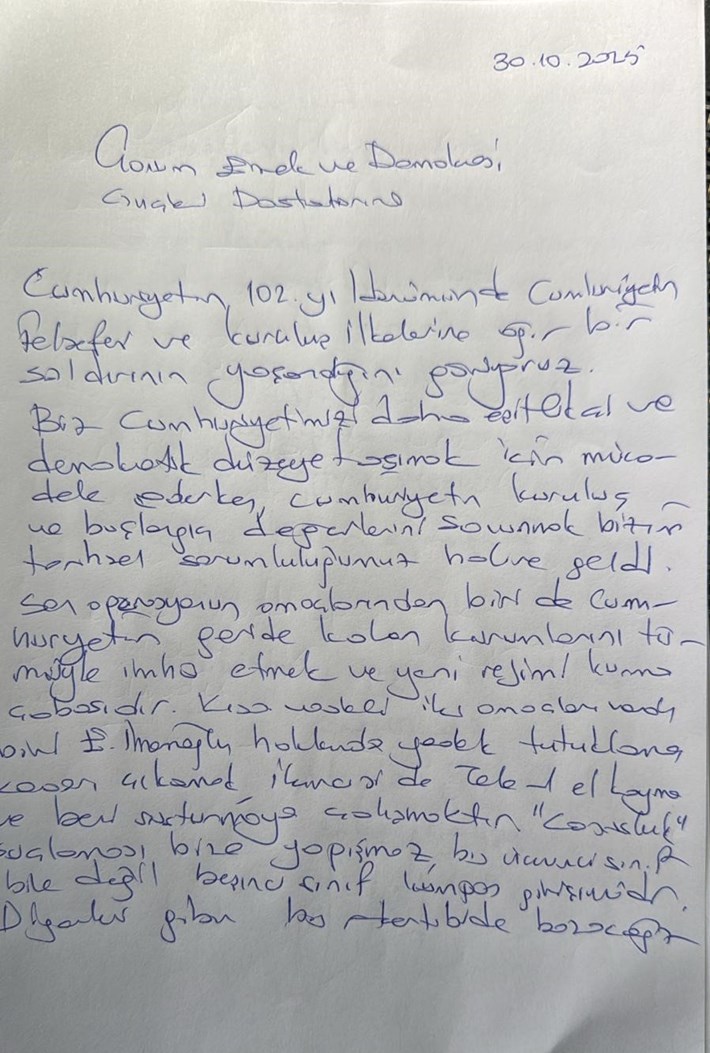 30.10.2025
Emek ve Demokrasi
Dostlarına
Cumhuriyetin 102. yıl dönümünde Cumhuriyetin
felsefesi ve kuruluş ilkelerine ağır bir
saldırının yaşandığını görüyoruz.
Biz Cumhuriyetimizi daha eşitlikçi ve
demokratik düzeye taşımak için müca-
dele ederken, cumhuriyetin kuruluş
ve başlangıç değerlerini savunmak bizim
tarihsel sorumluluğumuz haline geldi.
Senaryonun amaçlarından biri de Cum-
huriyetin geride kalan kurumlarını tü-
müyle imha etmek ve yeni rejimi kurma
çabasıdır. Kısa vadeli iki amaçları vardı
biri E. İmamoğlu hakkında yedek tutuklama
kararı çıkarmak, ikincisi de Tele 1 el koyma
ve beni susturmaya çalışmaktır. "Casusluk"
suçlaması bize yapışmaz, bu üçüncü sınıf
bile değil beşinci sınıf kumpas girişimidir.
Diğerleri gibi bu tertibi de bozacağız